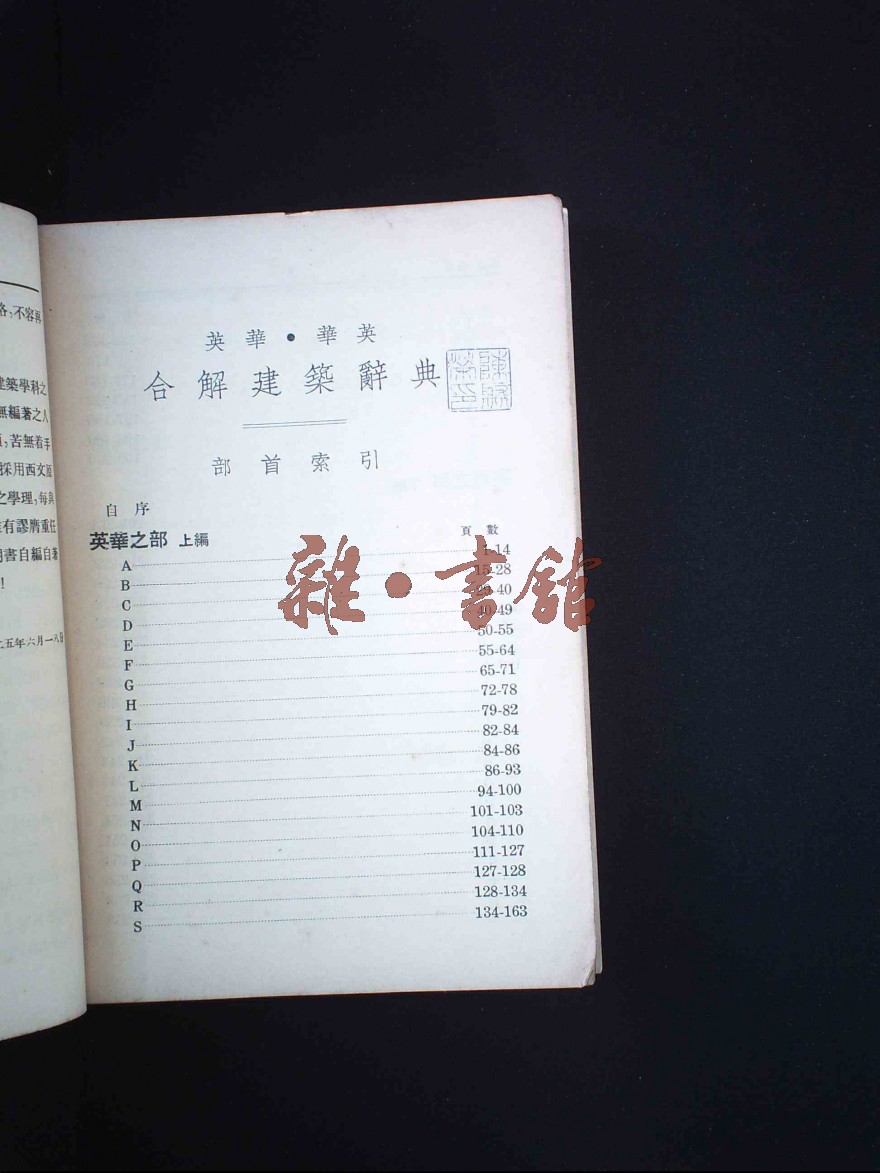 不容再
建築學科之
無編著之人
苦無着手
採用西文原
之學理，每與
有謬膺重任
書自編自著
!
五年六月一八日
英華・華英
合解建築辭典
部首索引
自序
英華之部 上編 頁數
A 1-14
B 15-28
C 29-40
D 40-49
E 50-55
F 55-64
G 65-71
H 72-78
I 79-82
J 82-84
K 84-86
L 86-93
M 94-100
N 101-103
O 104-110
P 111-127
Q 127-128
R 128-134
S 134-163
雜・書館